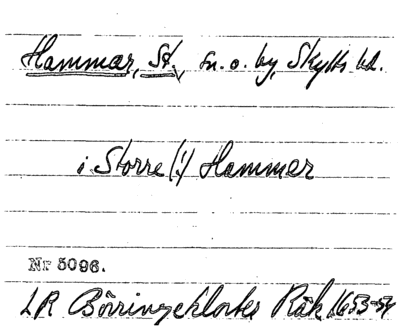 Hammar, St., sn. o. by, Skytts hd.
i Storre (!) Hammer
Nr 5096.
LR Börringeklosters Räk 1653-54